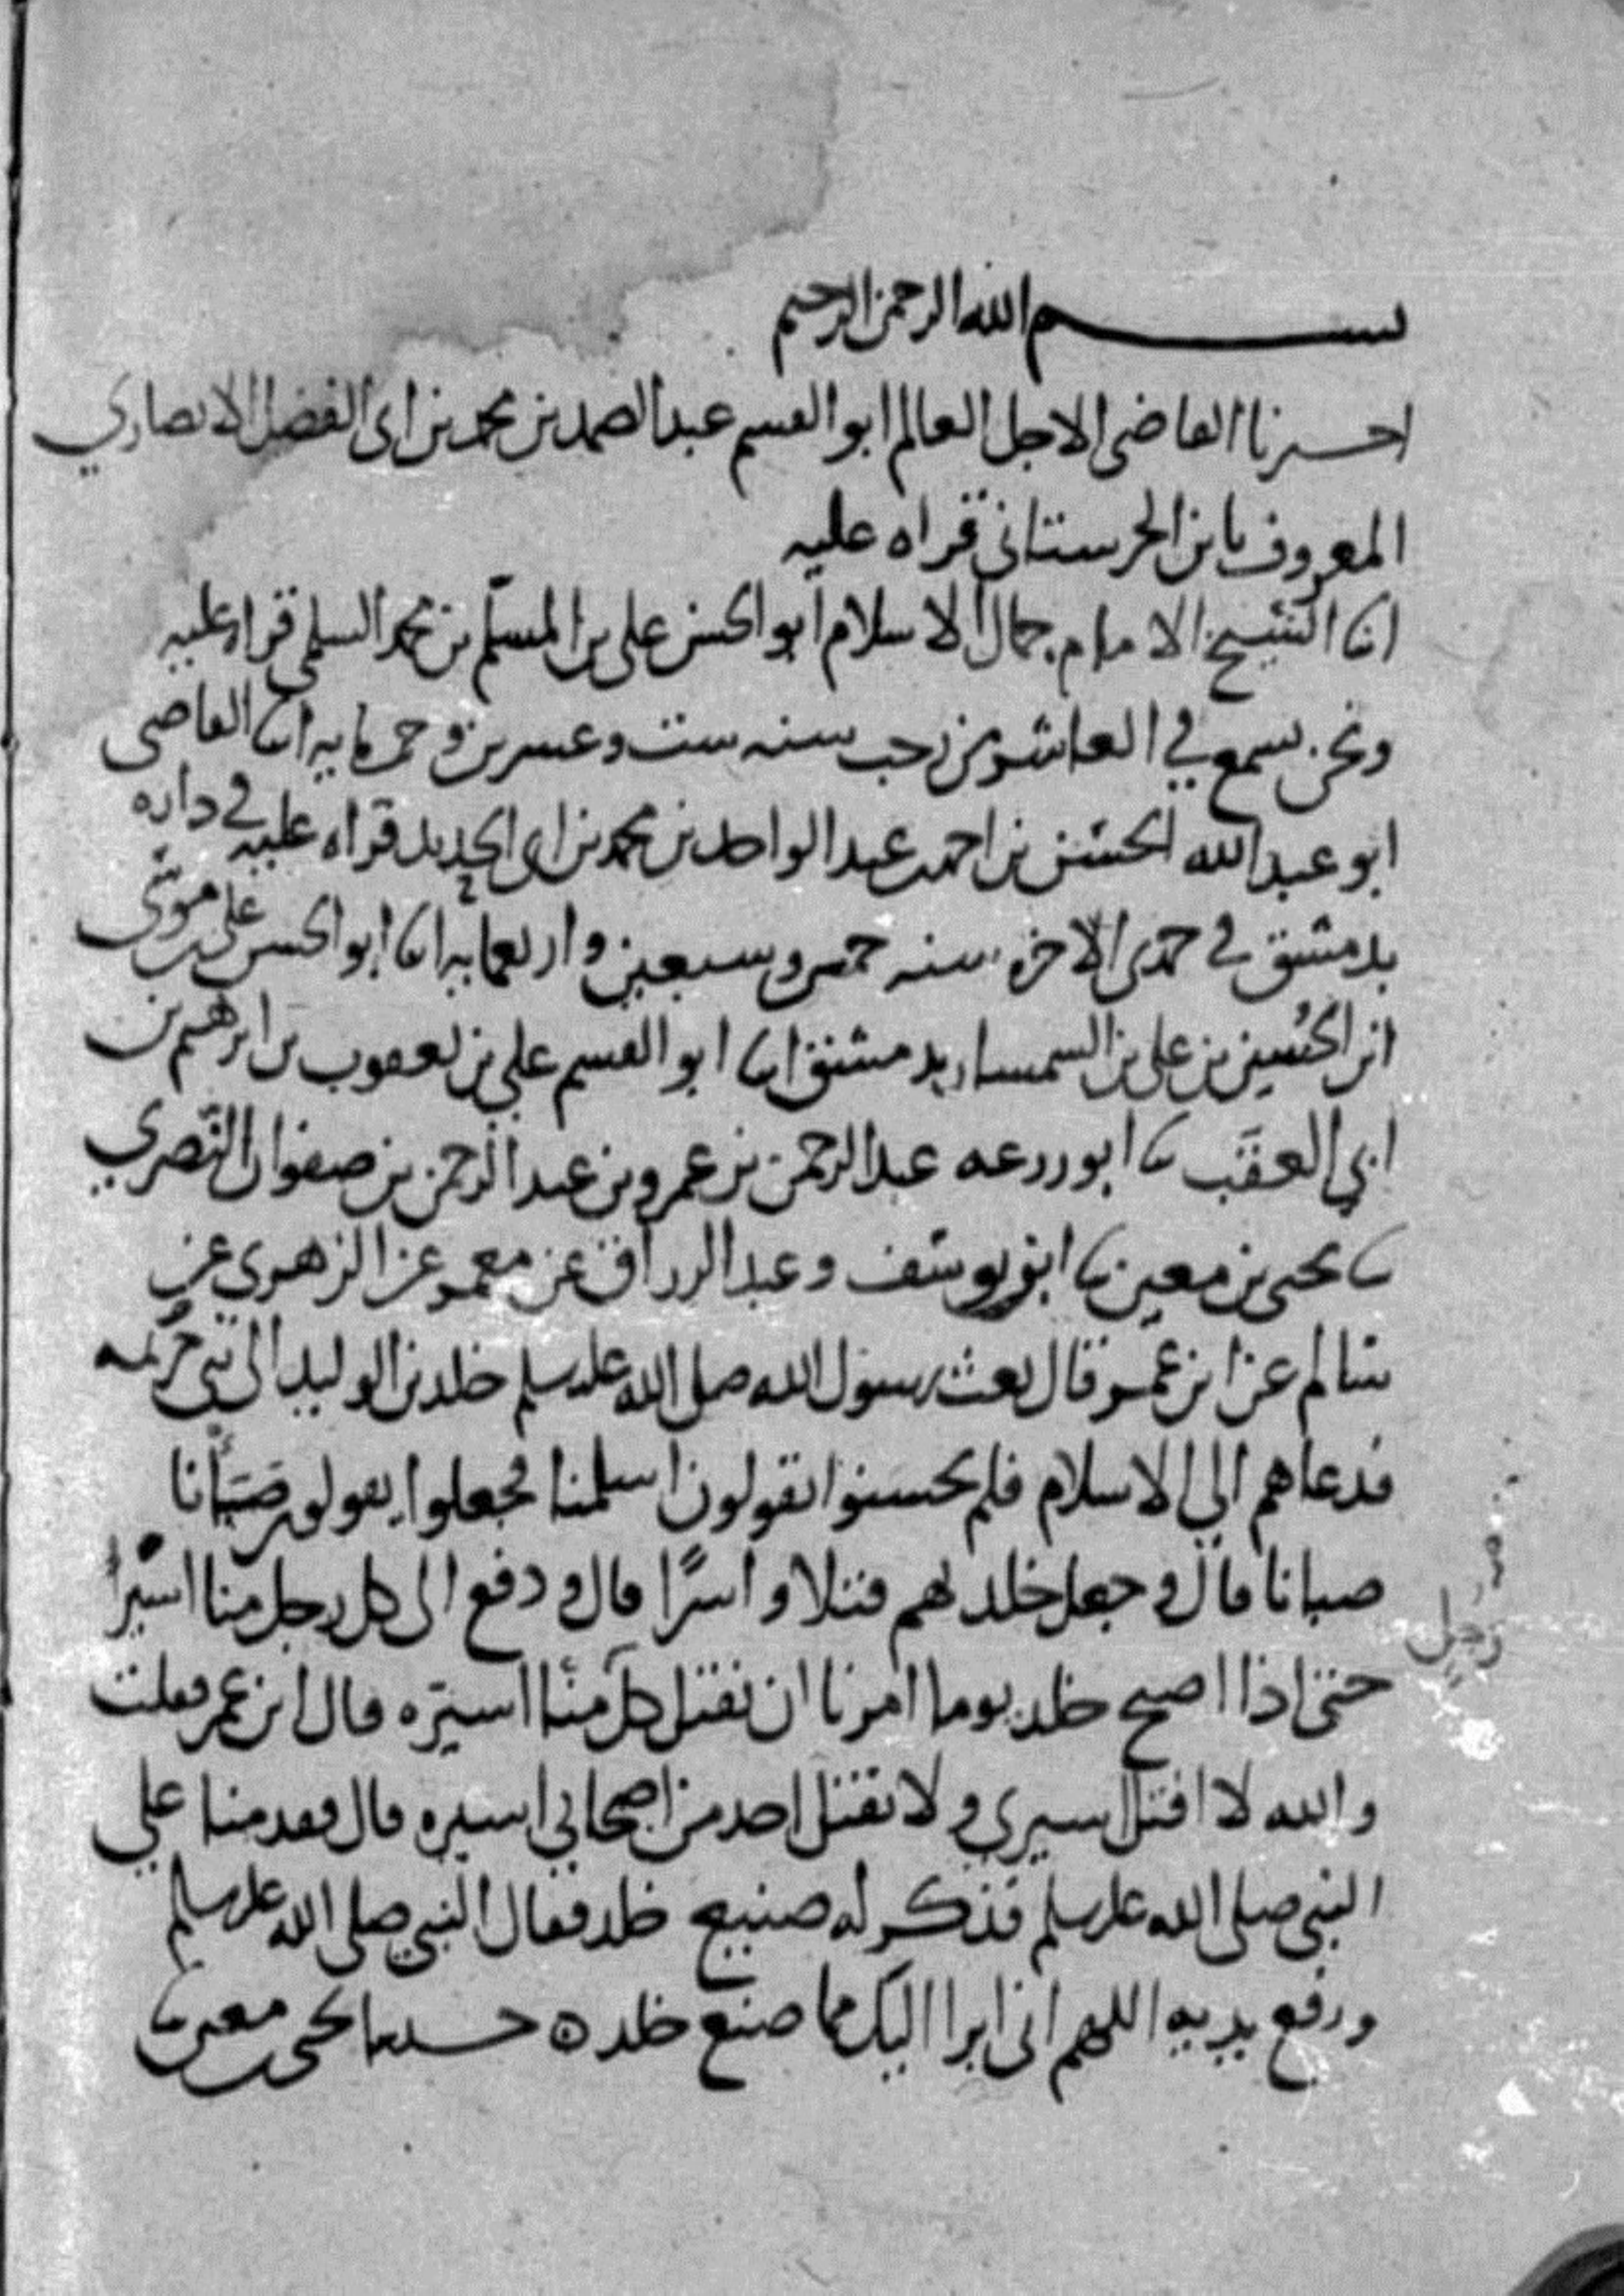 بسم الله الرحمن الرحيم
اخبرنا القاضى الاجل العالم ابو القسم عبد الصمد بن محمد بن ابى الفضل الانصاري
المعروف بابن الحرستانى قراه عليه
انا الشيخ الامام جمال الاسلام ابو الحسن على بن المسلم بن محمد السلمى قراه عليه
ونحن نسمع في العاشر من رجب سنه ست وعشرين وخمسمايه انا القاضى
ابو عبد الله الحسن بن احمد عبد الواحد بن محمد بن ابى الحديد قراه عليه في داره
بدمشق في جمدى الاخره سنه خمس وسبعين واربعمايه انا ابو الحسن على بن موسى
ابن الحسين بن على بن السمسار بدمشق انا ابو القسم علي بن يعقوب بن ابرهيم بن
ابي العقب نا ابو زرعه عبد الرحمن بن عمرو بن عبد الرحمن بن صفوان النصري
نا يحيى بن معين نا ابو يوسف وعبد الرزاق عن معمر عن الزهري عن
سالم عن ابن عمر قال بعث رسول الله صلى الله عليه وسلم خلد بن الوليد الى بني جذيمه
فدعاهم الي الاسلام فلم يحسنوا يقولون اسلمنا فجعلوا يقولون صبأنا
صبانا قال وجعل خلد لهم قتلا واسرًا قال ودفع الى كل رجل منا اسيرًا
حتى اذا اصبح خلد يوما امرنا ان نقتل كل منا اسيره قال ابن عمر فقلت
رجل
والله لا اقتل اسيري ولا يقتل احد من اصحابي اسيره قال فقدمنا علي
النبي صلى الله عليه وسلم فذكر له صنيع خلد فقال النبي صلى الله عليه وسلم
ورفع يديه اللهم انى ابرا اليك مما صنع خلد ه حدثنا يحيى بن معين نا